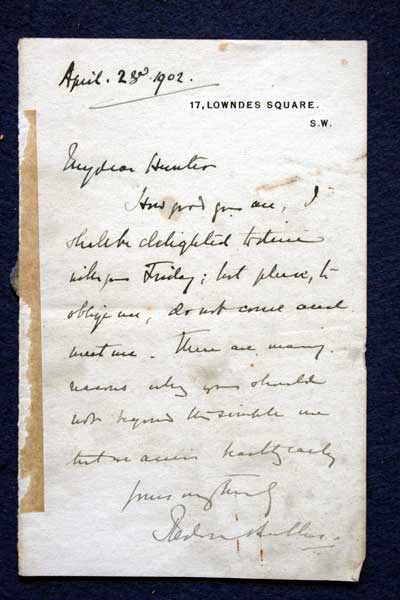 April. 23rd 1902.
17, LOWNDES SQUARE.
S.W.
My dear Hunter
How good you are, I
shall be delighted to dine
with you Friday; but please, to
oblige me, do not come and
meet me. There are many
reasons why you should
not beyond the simple one
that
yours very truly
Redvers Buller.